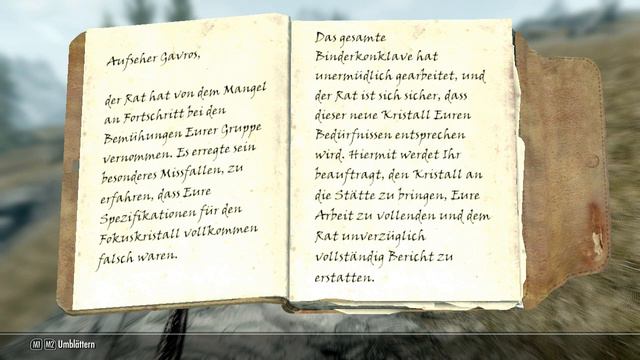 Aufseher Gavros,
der Rat hat von dem Mangel
an Fortschritt bei den
Bemühungen Eurer Gruppe
vernommen. Es erregte sein
besonderes Missfallen, zu
erfahren, dass Eure
Spezifikationen für den
Fokuskristall vollkommen
falsch waren.
Das gesamte
Binderkonklave hat
unermüdlich gearbeitet, und
der Rat ist sich sicher, dass
dieser neue Kristall Euren
Bedürfnissen entsprechen
wird. Hiermit werdet Ihr
beauftragt, den Kristall an
die Stätte zu bringen, Eure
Arbeit zu vollenden und dem
Rat unverzüglich
vollständig Bericht zu
erstatten.
M1 M2 Umblättern